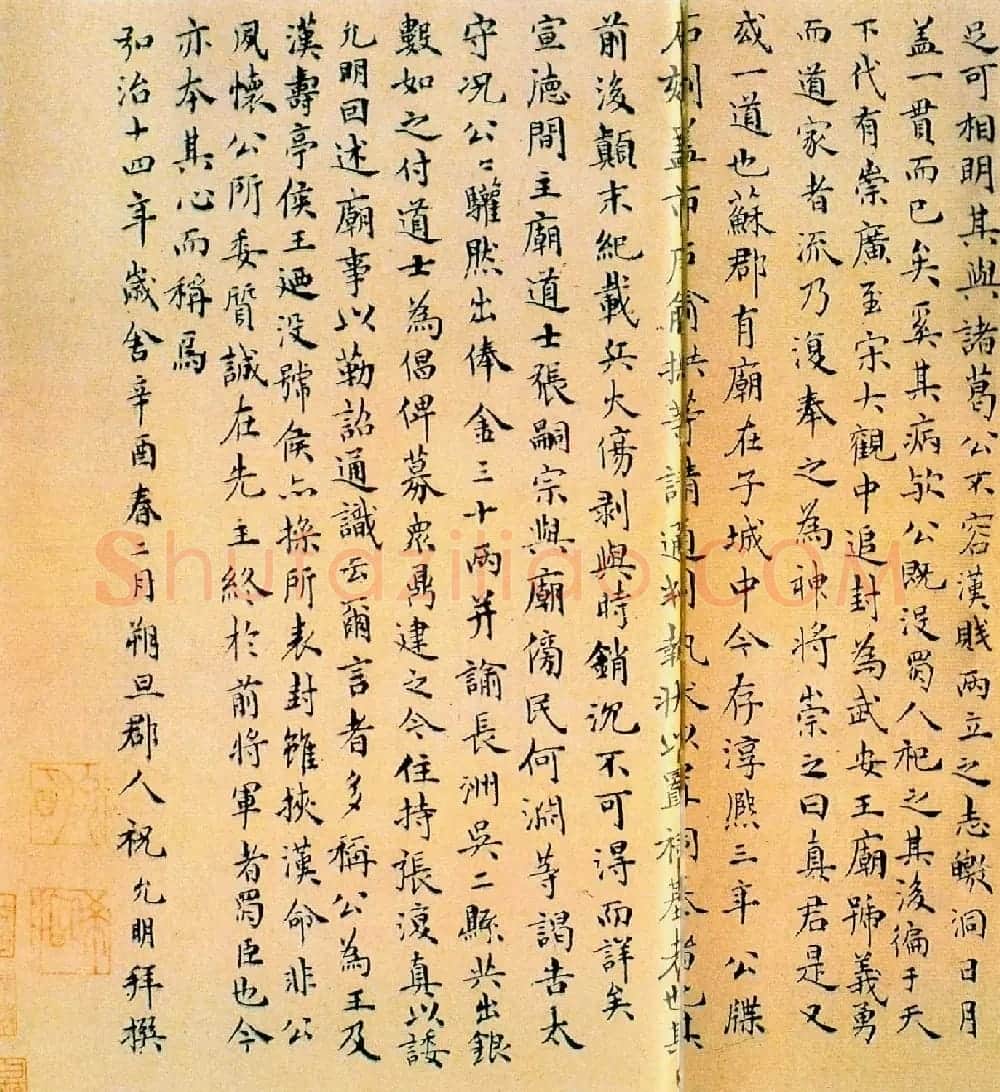 足可相明其與諸葛公不容漢賊兩立之志皦洞日月
盖一貫而已矣奚其病歟公既没蜀人祀之其後徧于天
下代有崇廣至宋大觀中追封為武安王廟號義勇
而道家者流乃復奉之為神將崇之曰真君是又
或一道也蘇郡有廟在子城中今存淳熙三年公牒
石刻盖市戶等請通判執狀以置祠基者也其
前後顛末紀載兵火傷剥與時銷沉不可得而詳矣
宣德間主廟道士張嗣宗與廟傍民何渊等謁告太
守况公公驩然出俸金三十兩并諭長洲吳二縣共出銀
數如之付道士為倡俾募衆鼎建之今住持張復真以諉
允明回述廟事以勒詔通識云爾言者多稱公為王及
漢壽亭侯王廼没號侯亦操所表封雖挾漢命非公
夙懷公所委質誠在先主終於前將軍者蜀臣也今
亦本其心而稱焉
弘治十四年歲舍辛酉春二月朔旦郡人祝允明拜撰
Shufaziliao.COM